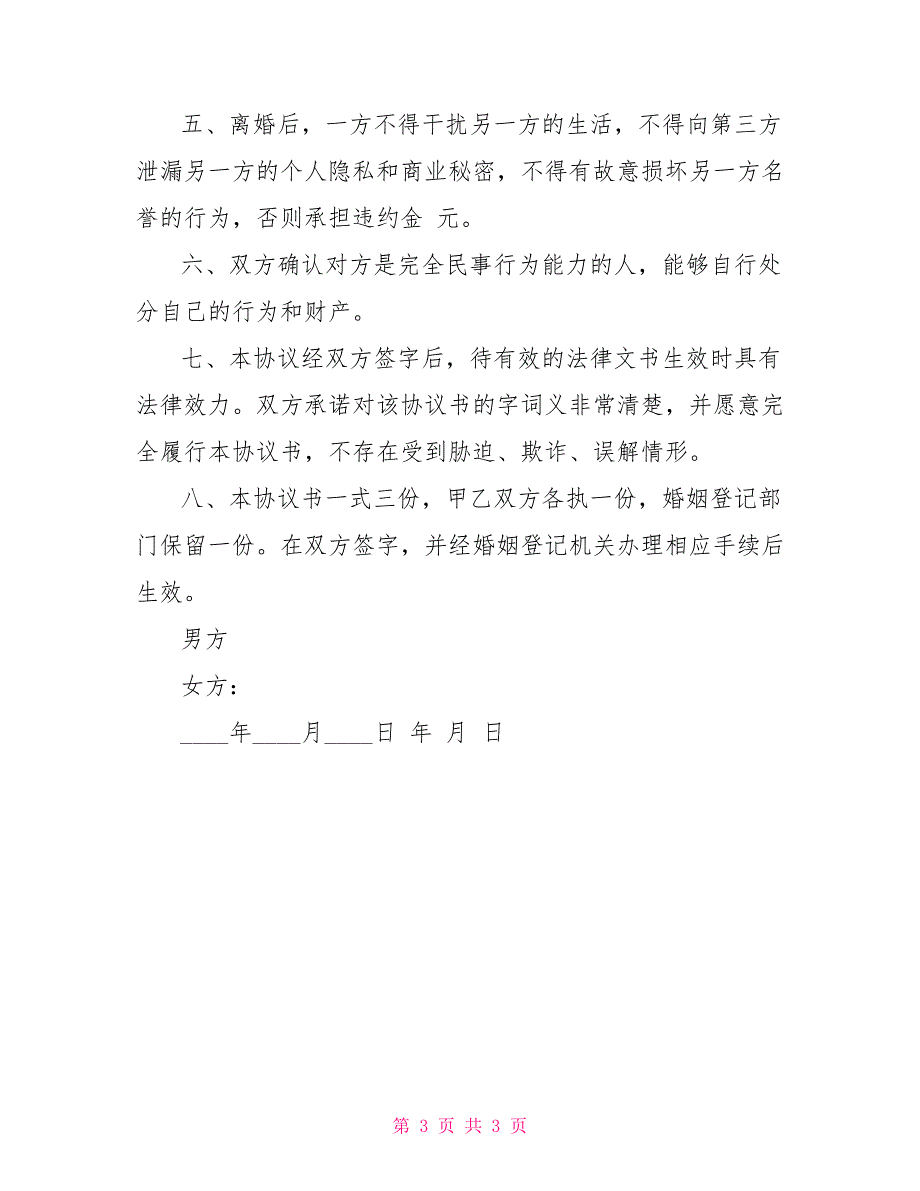 五、离婚后，一方不得干扰另一方的生活，不得向第三方
泄漏另一方的个人隐私和商业秘密，不得有故意损坏另一方名
誉的行为，否则承担违约金 元。
六、双方确认对方是完全民事行为能力的人，能够自行处
分自己的行为和财产。
七、本协议经双方签字后，待有效的法律文书生效时具有
法律效力。双方承诺对该协议书的字词义非常清楚，并愿意完
全履行本协议书，不存在受到胁迫、欺诈、误解情形。
八、本协议书一式三份，甲乙双方各执一份，婚姻登记部
门保留一份。在双方签字，并经婚姻登记机关办理相应手续后
生效。
男方
女方：
____年____月____日 年 月 日
第 3 页 共 3 页